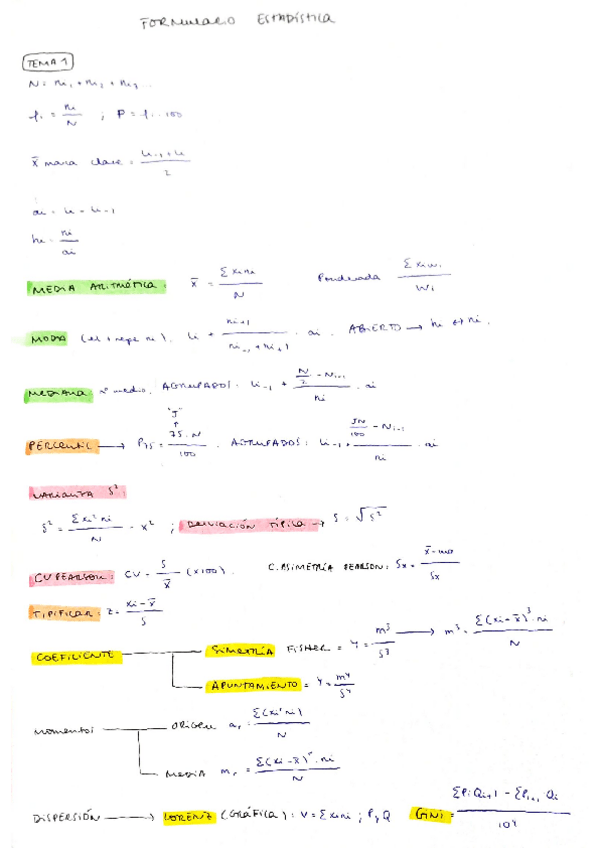 FORMULARIO ESTADÍSTICA
TEMA 1
N = n₁ + n₂ + n₃
fᵢ = nᵢ/N ; P = fᵢ · 100
x̄ marca clase = (Lᵢ₋₁ + Lᵢ)/2
aᵢ = Lᵢ - Lᵢ₋₁
hᵢ = nᵢ/aᵢ
MEDIA ARITMÉTICA: x̄ = Σxᵢnᵢ/N Ponderada Σxᵢwᵢ/Wᵢ
MODA (el + repe nᵢ). Lᵢ + nᵢ₊₁/(nᵢ₋₁ + nᵢ₊₁) · aᵢ. ABIERTO → hᵢ ↔ nᵢ.
MEDIANA: nº medio. AGRUPADOS: Lᵢ₋₁ + (N/2 - Nᵢ₋₁)/nᵢ · aᵢ
"J"
↑
PERCENTIL → P₇₅ = 75·N/100. AGRUPADOS: Lᵢ₋₁ + (JN/100 - Nᵢ₋₁)/nᵢ · aᵢ
VARIANZA S²:
S² = Σxᵢ²nᵢ/N - x̄² ; DESVIACIÓN TÍPICA → S = √S²
CV PEARSON: CV = S/x̄ (x100). C. ASIMETRÍA PEARSON: Sx = (x̄ - mo)/Sx
TIPIFICAR: z = (xᵢ - x̄)/S
COEFICIENTE SIMETRÍA FISHER = Y = m³/S³ → m³ = Σ(xᵢ - x̄)³ · nᵢ/N
APUNTAMIENTO = Y = m⁴/S⁴
Momentos ORIGEN aᵣ = Σ(xᵢʳnᵢ)/N
MEDIA mᵣ = Σ(xᵢ - x̄)ʳ · nᵢ/N
DISPERSIÓN → LORENZ (GRÁFICA): V = Σxᵢnᵢ ; P y Q GINI = (ΣPᵢQᵢ₊₁ - ΣPᵢ₊₁Qᵢ)/10⁴